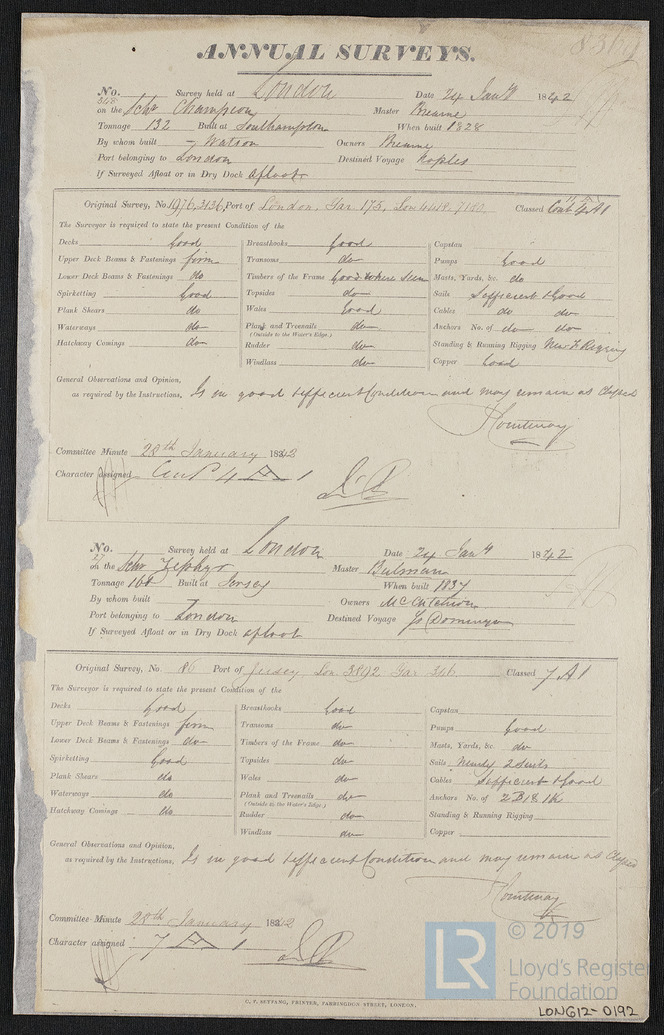 8369
ANNUAL SURVEYS.
No. 368 Survey held at London Date 24 Jany 1842
on the Schr Champion Master Brewne
Tonnage 132 Built at Southampton When built 1828
By whom built – Watson Owners Brewne
Port belonging to London Destined Voyage Naples
If Surveyed Afloat or in Dry Dock afloat
Original Survey, No. 1976, 3136, Port of London, Gar 175, Lon 4448, 7100 Classed Cont 4 A 1
The Surveyor is required to state the present Condition of the
Decks Good Breasthooks Good Capstan
Upper Deck Beams & Fastenings firm Transoms do Pumps Good
Lower Deck Beams & Fastenings do Timbers of the Frame Good Where Seen Masts, Yards, &c. do
Spirketting Good Topsides do Sails Sefficient & Good
Plank Shears do Wales Good Cables do do
Waterways do Plank and Treenails do Anchors No. of do do
(Outside to the Water's Edge.)
Hatchway Comings do Rudder do Standing & Running Rigging New F Rigging
Windlass do Copper Good
General Observations and Opinion,
as required by the Instructions, Is in good & efficient Condition and may remain as Classed
Courtenay
Committee Minute 28th January 1842
Character assigned Cont 4 A 1
No. 27 Survey held at London Date 24 Jany 1842
on the Schr Zephyr Master Bulman
Tonnage 160 Built at Jersey When built 1837
By whom built – Owners McCutcheon
Port belonging to London Destined Voyage St Domingo
If Surveyed Afloat or in Dry Dock afloat
Original Survey, No. 86 Port of Jersey Lon 3892 Gar 346 Classed 7 A 1
The Surveyor is required to state the present Condition of the
Decks Good Breasthooks Good Capstan
Upper Deck Beams & Fastenings firm Transoms do Pumps Good
Lower Deck Beams & Fastenings do Timbers of the Frame do Masts, Yards, &c. do
Spirketting Good Topsides do Sails Nearly 2 Suits
Plank Shears do Wales do Cables Sefficient & Good
Waterways do Plank and Treenails do Anchors No. of 2 B 1 S 1 K
(Outside to the Water's Edge.)
Hatchway Comings do Rudder do Standing & Running Rigging
Windlass do Copper
General Observations and Opinion,
as required by the Instructions, Is in good & efficient Condition and may remain as Classed
Courtenay
Committee Minute 28th January 1842
Character assigned 7 A 1
C. F. SEYFANG, PRINTER, FARRINGDON STREET, LONDON.
LR © 2019
Lloyd's Register
Foundation
LON612-0192